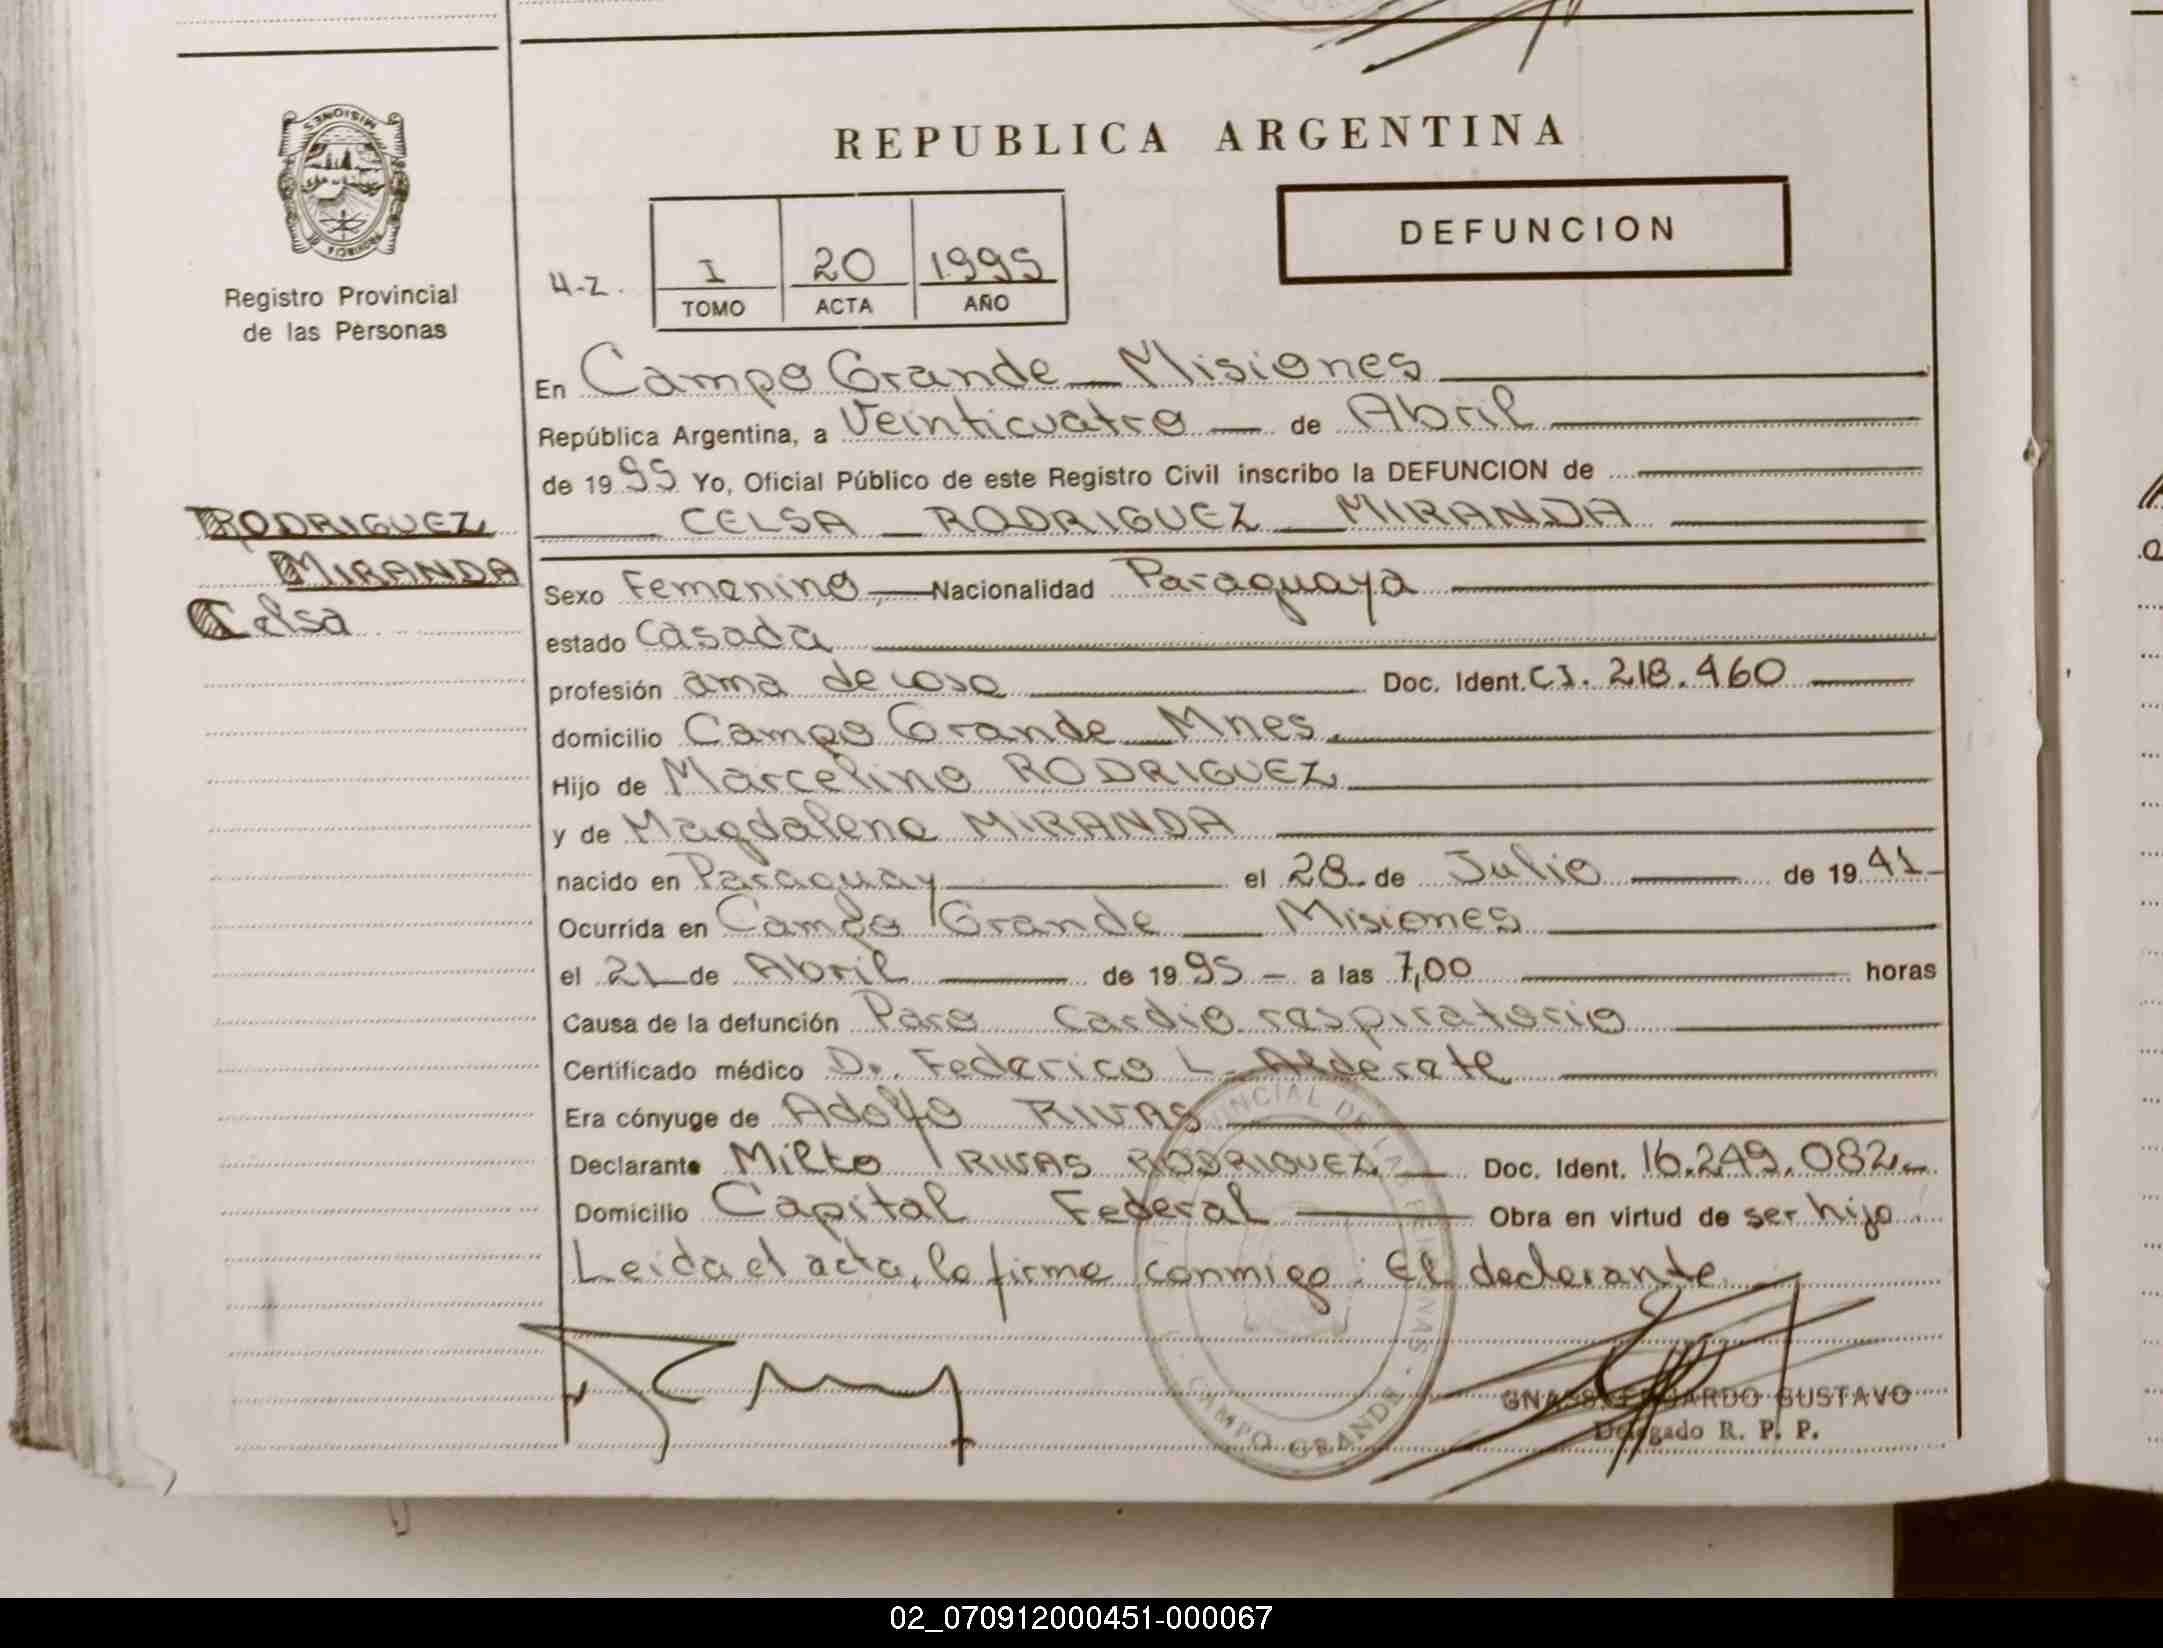 REPUBLICA ARGENTINA
MISIONES
PROVINCIA DE
Registro Provincial
de las Personas
DEFUNCION
4-Z.
I 20 1995
TOMO ACTA AÑO
En Campo Grande Misiones
República Argentina, a Veinticuatro de Abril
de 1995 Yo, Oficial Público de este Registro Civil inscribo la DEFUNCION de
CELSA RODRIGUEZ MIRANDA
RODRIGUEZ
MIRANDA
Celsa
Sexo Femenino, Nacionalidad Paraguaya
estado casada
profesión ama de casa Doc. Ident. CI. 218.460
domicilio Campo Grande Mnes.
Hijo de Marcelino RODRIGUEZ
y de Magdalena MIRANDA
nacido en Paraguay el 28 de Julio de 1941
Ocurrida en Campo Grande Misiones
el 21 de Abril de 1995 a las 7,00 horas
Causa de la defunción Paro cardio respiratorio
Certificado médico Dr. Federico L. Alderete
Era cónyuge de Adolfo RIVAS
Declarante Milto RIVAS RODRIGUEZ Doc. Ident. 16.249.082
Domicilio Capital Federal Obra en virtud de ser hijo.
Leida el acta, la firma conmigo: El declarante
GNASS, EDUARDO GUSTAVO
Delegado R. P. P.
CAMPO GRANDE
02_070912000451-000067